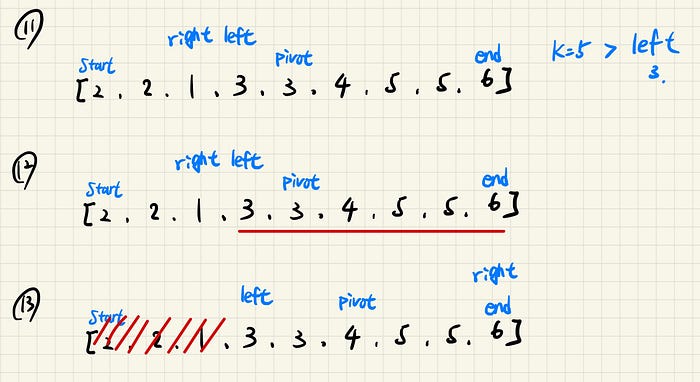 (11)
right left
Start pivot end
K=5 > left
3.
[2 . 2 . 1 . 3 . 3 . 4 . 5 . 5 . 6]
(12)
right left
Start pivot end
[2 . 2 . 1 . 3 . 3 . 4 . 5 . 5 . 6]
(13)
right
Start left pivot end
[2 . 2 . 1 . 3 . 3 . 4 . 5 . 5 . 6]